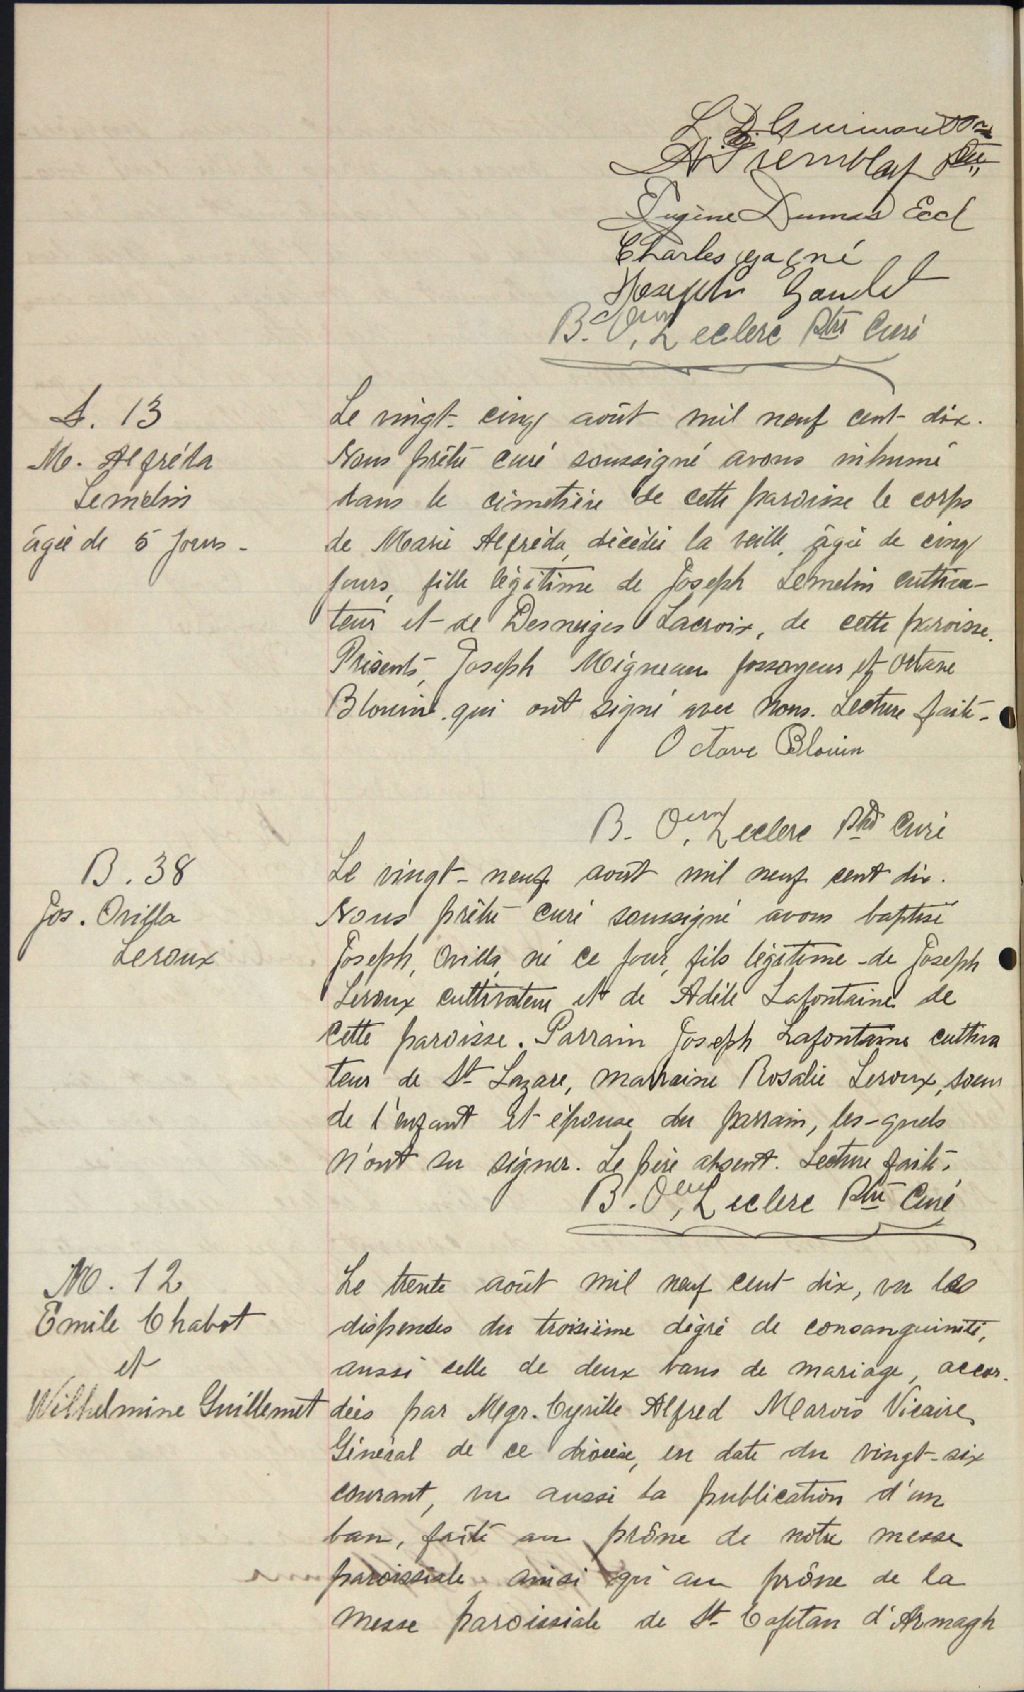 A. Tremblay Ptre
Eugène Dumas Eccl
Charles gagné
Joseph Goulet
B. Ouen, Leclerc Ptre Curé
S. 13
M. Alfréda
Lemelin
âgée de 5 jours -
Le vingt-cinq août mil neuf cent dix.
Nous prêtre curé soussigné avons inhumé
dans le cimetière de cette paroisse le corps
de Marie Alfréda, décédée la veille, âgée de cinq
jours, fille légitime de Joseph Lemelin cultiva-
teur et de Desneiges Lacroix, de cette paroisse.
Présents, Joseph Migneau fossoyeur et Octave
Blouin qui ont signé avec nous. Lecture faite.
Octave Blouin
B. Ouen, Leclerc Ptre Curé
B. 38
Jos. Ovilla
Leroux
Le vingt-neuf août mil neuf cent dix.
Nous prêtre curé soussigné avons baptisé
Joseph, Ovilla, né ce jour, fils légitime de Joseph
Leroux cultivateur et de Adèle Lafontaine de
cette paroisse. Parrain Joseph Lafontaine cultiva
teur de St Lazare, marraine Rosalie Leroux, soeur
de l'enfant et épouse du parrain, les-quels
n'ont su signer. Le père absent. Lecture faite.
B. Ouen, Leclerc Ptre Curé
M. 12
Emile Chabot
et
Wilhelmine Guillemet
Le trente août mil neuf cent dix, vu les
dispenses du troisième degré de consanguinité,
aussi celle de deux bans de mariage, accor-
dées par Mgr. Cyrille Alfred Marois Vicaire
Général de ce diocèse, en date du vingt-six
courant, vu aussi la publication d'un
ban, faite au prône de notre messe
paroissiale, ainsi qu'au prône de la
messe paroissiale de St Cajetan d'Armagh